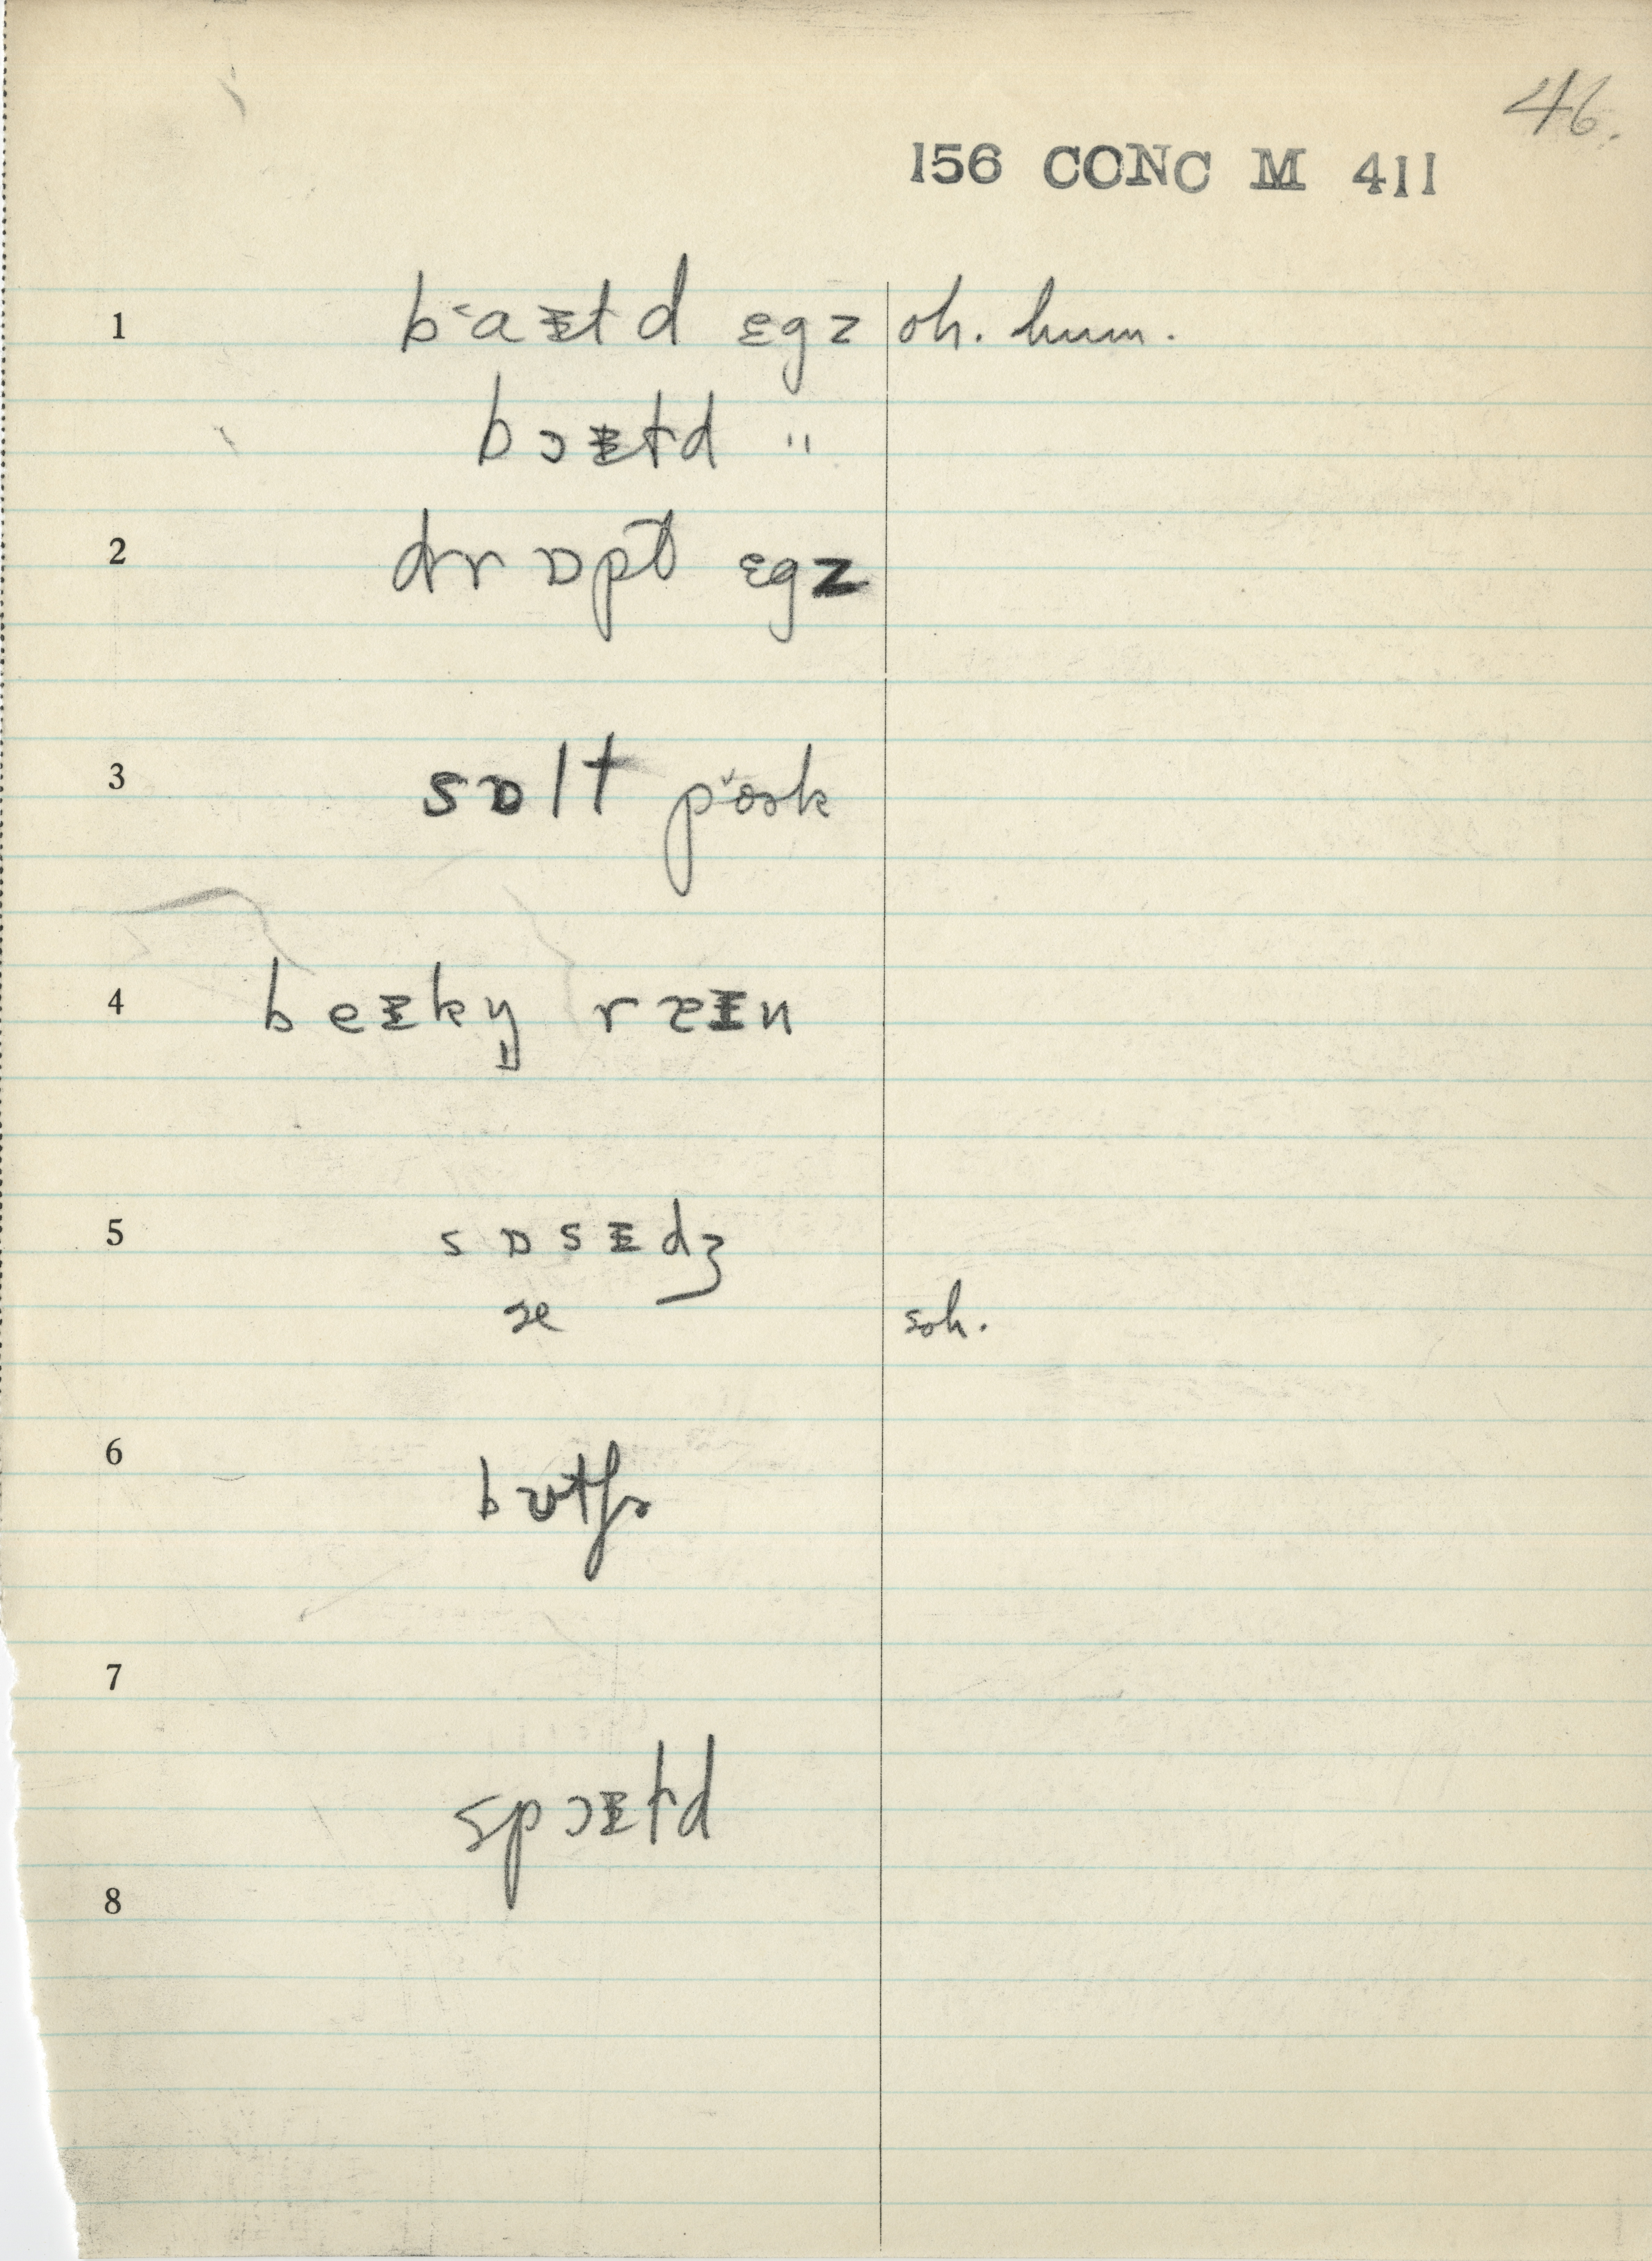 46.
156 CONC M 411
1 b˂aᵻld ɛgz oh. hum.
bɔᵻld "
2 drɒpt ɛgz
3 sɒlt pɔ̌ək
4 beᵻkn̩ ræᵻn
5 sɒsᵻdʒ
æ soh.
6 bʊtʃɚ
7
spɔᵻld
8